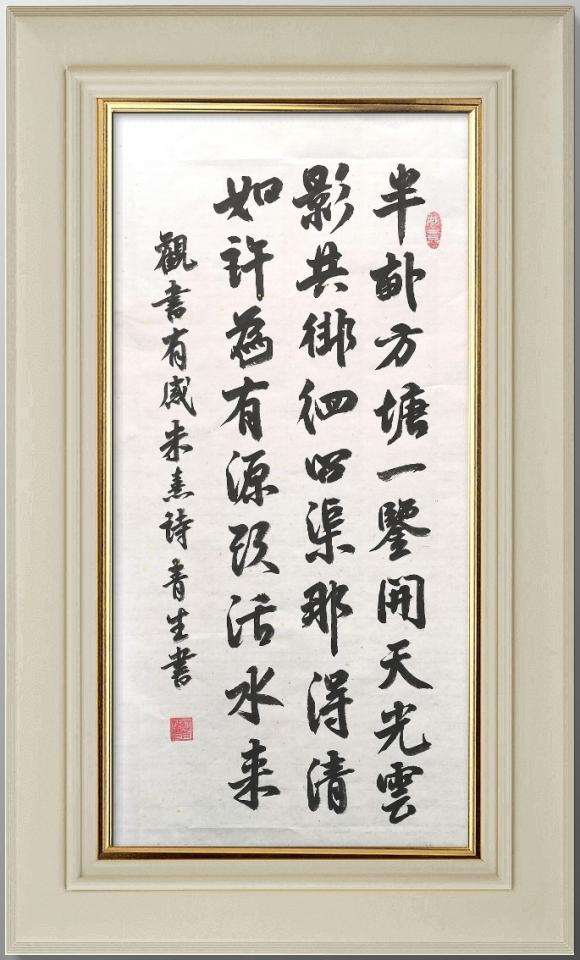 半畝方塘一鑒開天光雲
影共徘徊問渠那得清
如許為有源頭活水来
觀書有感朱熹詩青生書